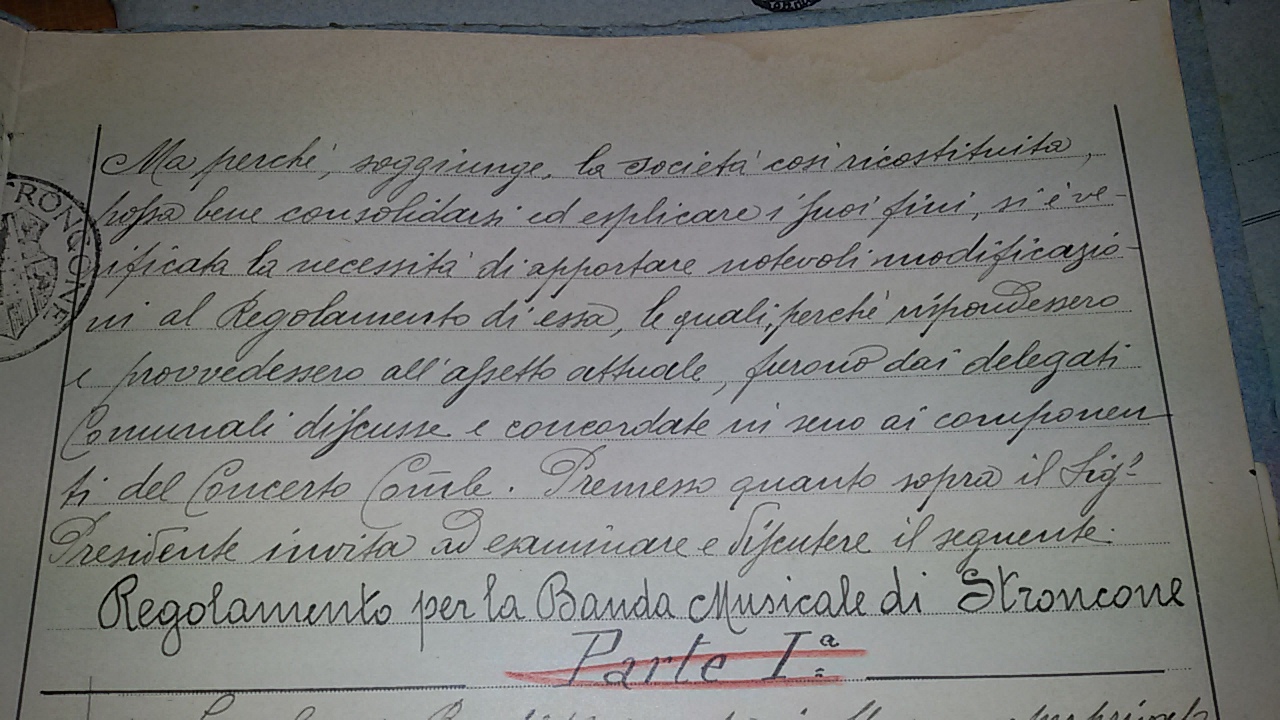 Ma perchè, soggiunge, la società così ricostituita,
possa bene consolidarsi ed esplicare i suoi fini, si è ve-
ificata la necessità di apportare notevoli modificazio-
ni al Regolamento di essa, le quali, perchè rispondessero
e provvedessero all'assetto attuale, furono dai delegati
Comunali discusse e concordate in seno ai componen
ti del Concerto Com̃le. Premesso quanto sopra il Sigr
Presidente invita ad esaminare e discutere il seguente.
Regolamento per la Banda Musicale di Stroncone
Parte Iª
TRONCONE